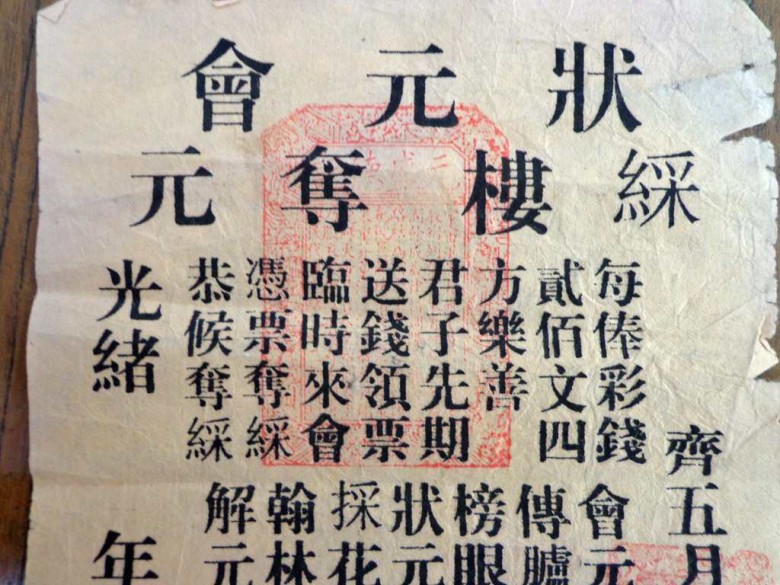 狀元會
綵樓奪元
齊五月
每俸彩錢
貳佰文四
方樂善
君子先期
送錢領票
臨時來會
憑票奪綵
恭候奪綵
會元
傳臚
榜眼
狀元
採花
翰林
解元
光緒年